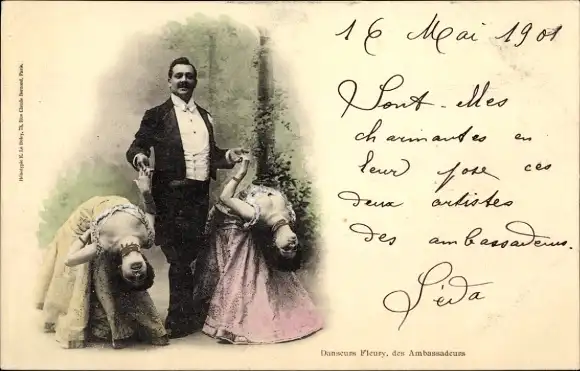 16 Mai 1901
Sont-elles
charmantes en
leur pose ces
deux artistes
des ambassadeurs.
Léda
Danseurs Fleury, des Ambassadeurs
Héliotypie E. Le Deley, 73, Rue Claude Bernard, Paris.